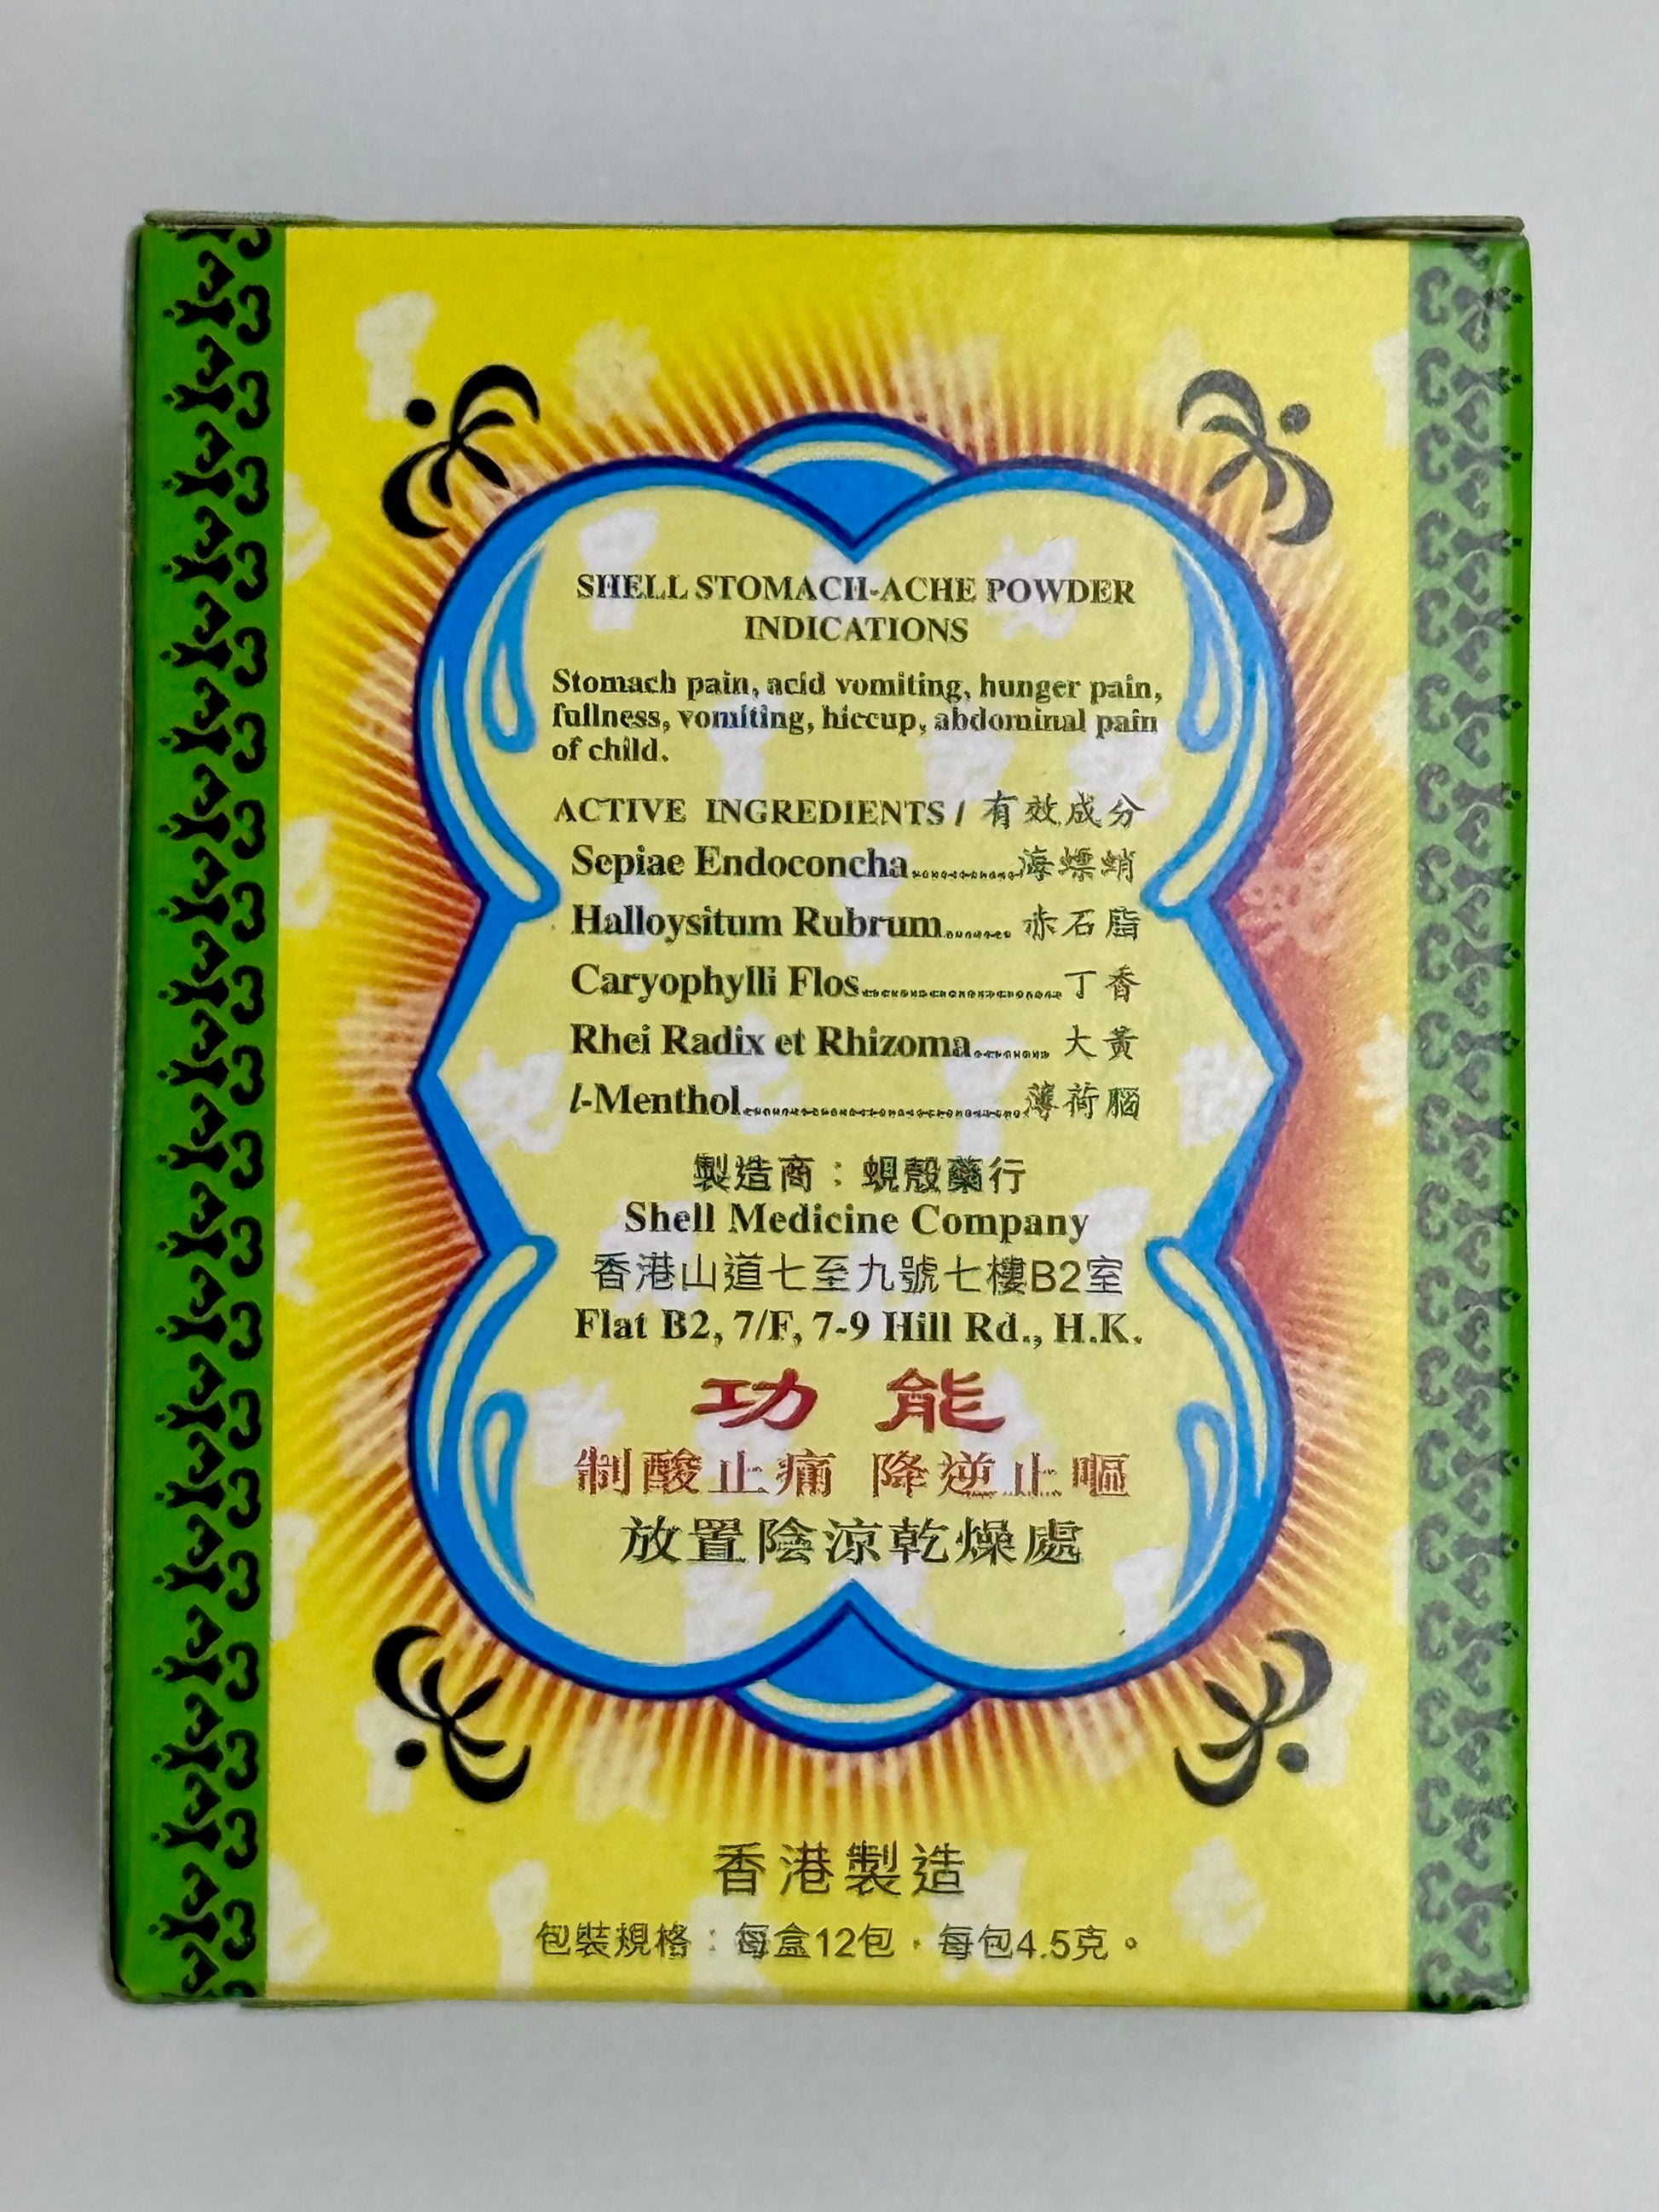 SHELL STOMACH-ACHE POWDER
INDICATIONS
Stomach pain, acid vomiting, hunger pain,
fullness, vomiting, hiccup, abdominal pain
of child.
ACTIVE INGREDIENTS / 有效成分
Sepiae Endoconcha..............海螵蛸
Halloysitum Rubrum......... 赤石脂
Caryophylli Flos..........................丁香
Rhei Radix et Rhizoma.......... 大黃
l-Menthol....................................薄荷腦
製造商：蜆殼藥行
Shell Medicine Company
香港山道七至九號七樓B2室
Flat B2, 7/F, 7-9 Hill Rd., H.K.
功能
制酸止痛 降逆止嘔
放置陰涼乾燥處
香港製造
包裝規格：每盒12包，每包4.5克。